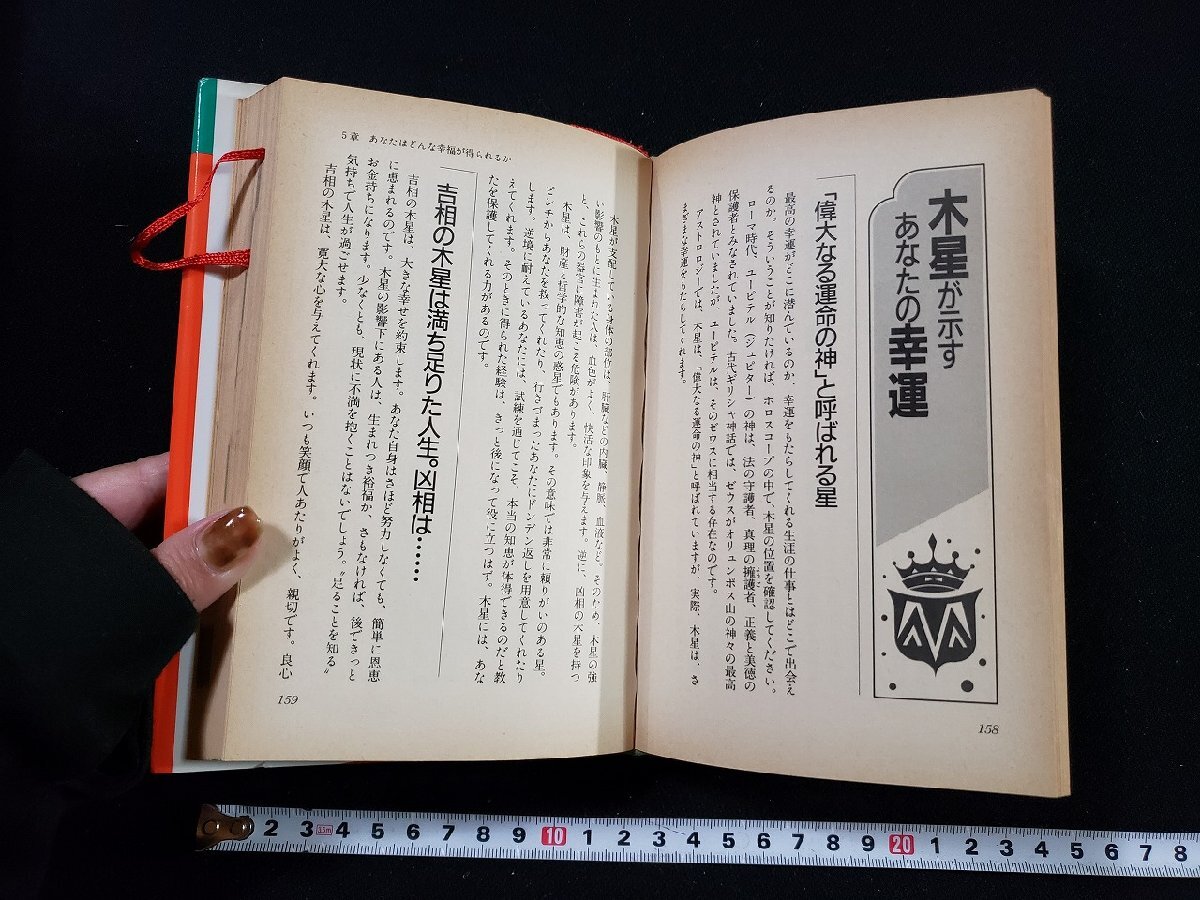 木星が示す
あなたの幸運
「偉大なる運命の神」と呼ばれる星
最高の幸運がどこに潜んでいるのか、幸運をもたらしてくれる生涯の仕事とはどこで出会え
るのか。そういうことが知りたければ、ホロスコープの中で、木星の位置を確認してください。
ローマ時代、ユーピテル（ジュピター）の神は、法の守護者、真理の擁護者、正義と美徳の
保護者とみなされていました。古代ギリシャ神話では、ゼウスがオリュンポス山の神々の最高
神とされていましたが、ユーピテルは、そのゼウスに相当する存在なのです。
アストロロジーでは、木星は、「偉大なる運命の神」と呼ばれていますが、実際、木星は、さ
まざまな幸運をもたらしてくれます。
158
5章 あなたはどんな幸福が得られるか
木星が支配している身体の部位は、肝臓などの内臓、静脈、血液など。そのため、木星の強
い影響のもとに生まれた人は、血色がよく、快活な印象を与えます。逆に、凶相の木星を持つ
と、これらの器官に障害が起こる危険があります。
木星は、財産と哲学的な知恵の惑星でもあります。その意味では非常に頼りがいのある星。
ピンチからあなたを救ってくれたり、行きづまったあなたにドンデン返しを用意してくれたり
します。逆境に耐えているあなたには、試練を通じてこそ、本当の知恵が体得できるのだと教
えてくれます。そのときに得られた経験は、きっと後になって役に立つはず。木星には、あな
たを保護してくれる力があるのです。
吉相の木星は満ち足りた人生。凶相は……
吉相の木星は、大きな幸せを約束します。あなた自身はさほど努力しなくても、簡単に恩恵
に恵まれるのです。木星の影響下にある人は、生まれつき裕福か、さもなければ、後できっと
お金持ちになります。少なくとも、現状に不満を抱くことはないでしょう。〝足ることを知る〟
気持ちで人生が過ごせます。
吉相の木星は、寛大な心を与えてくれます。いつも笑顔で人あたりがよく、親切です。良心
159
2 3 3.5m 4 5 6 7 8 9 10 1 2 3 4 5 6 7 8 9 20 1 2 3 4 5 6 7 8